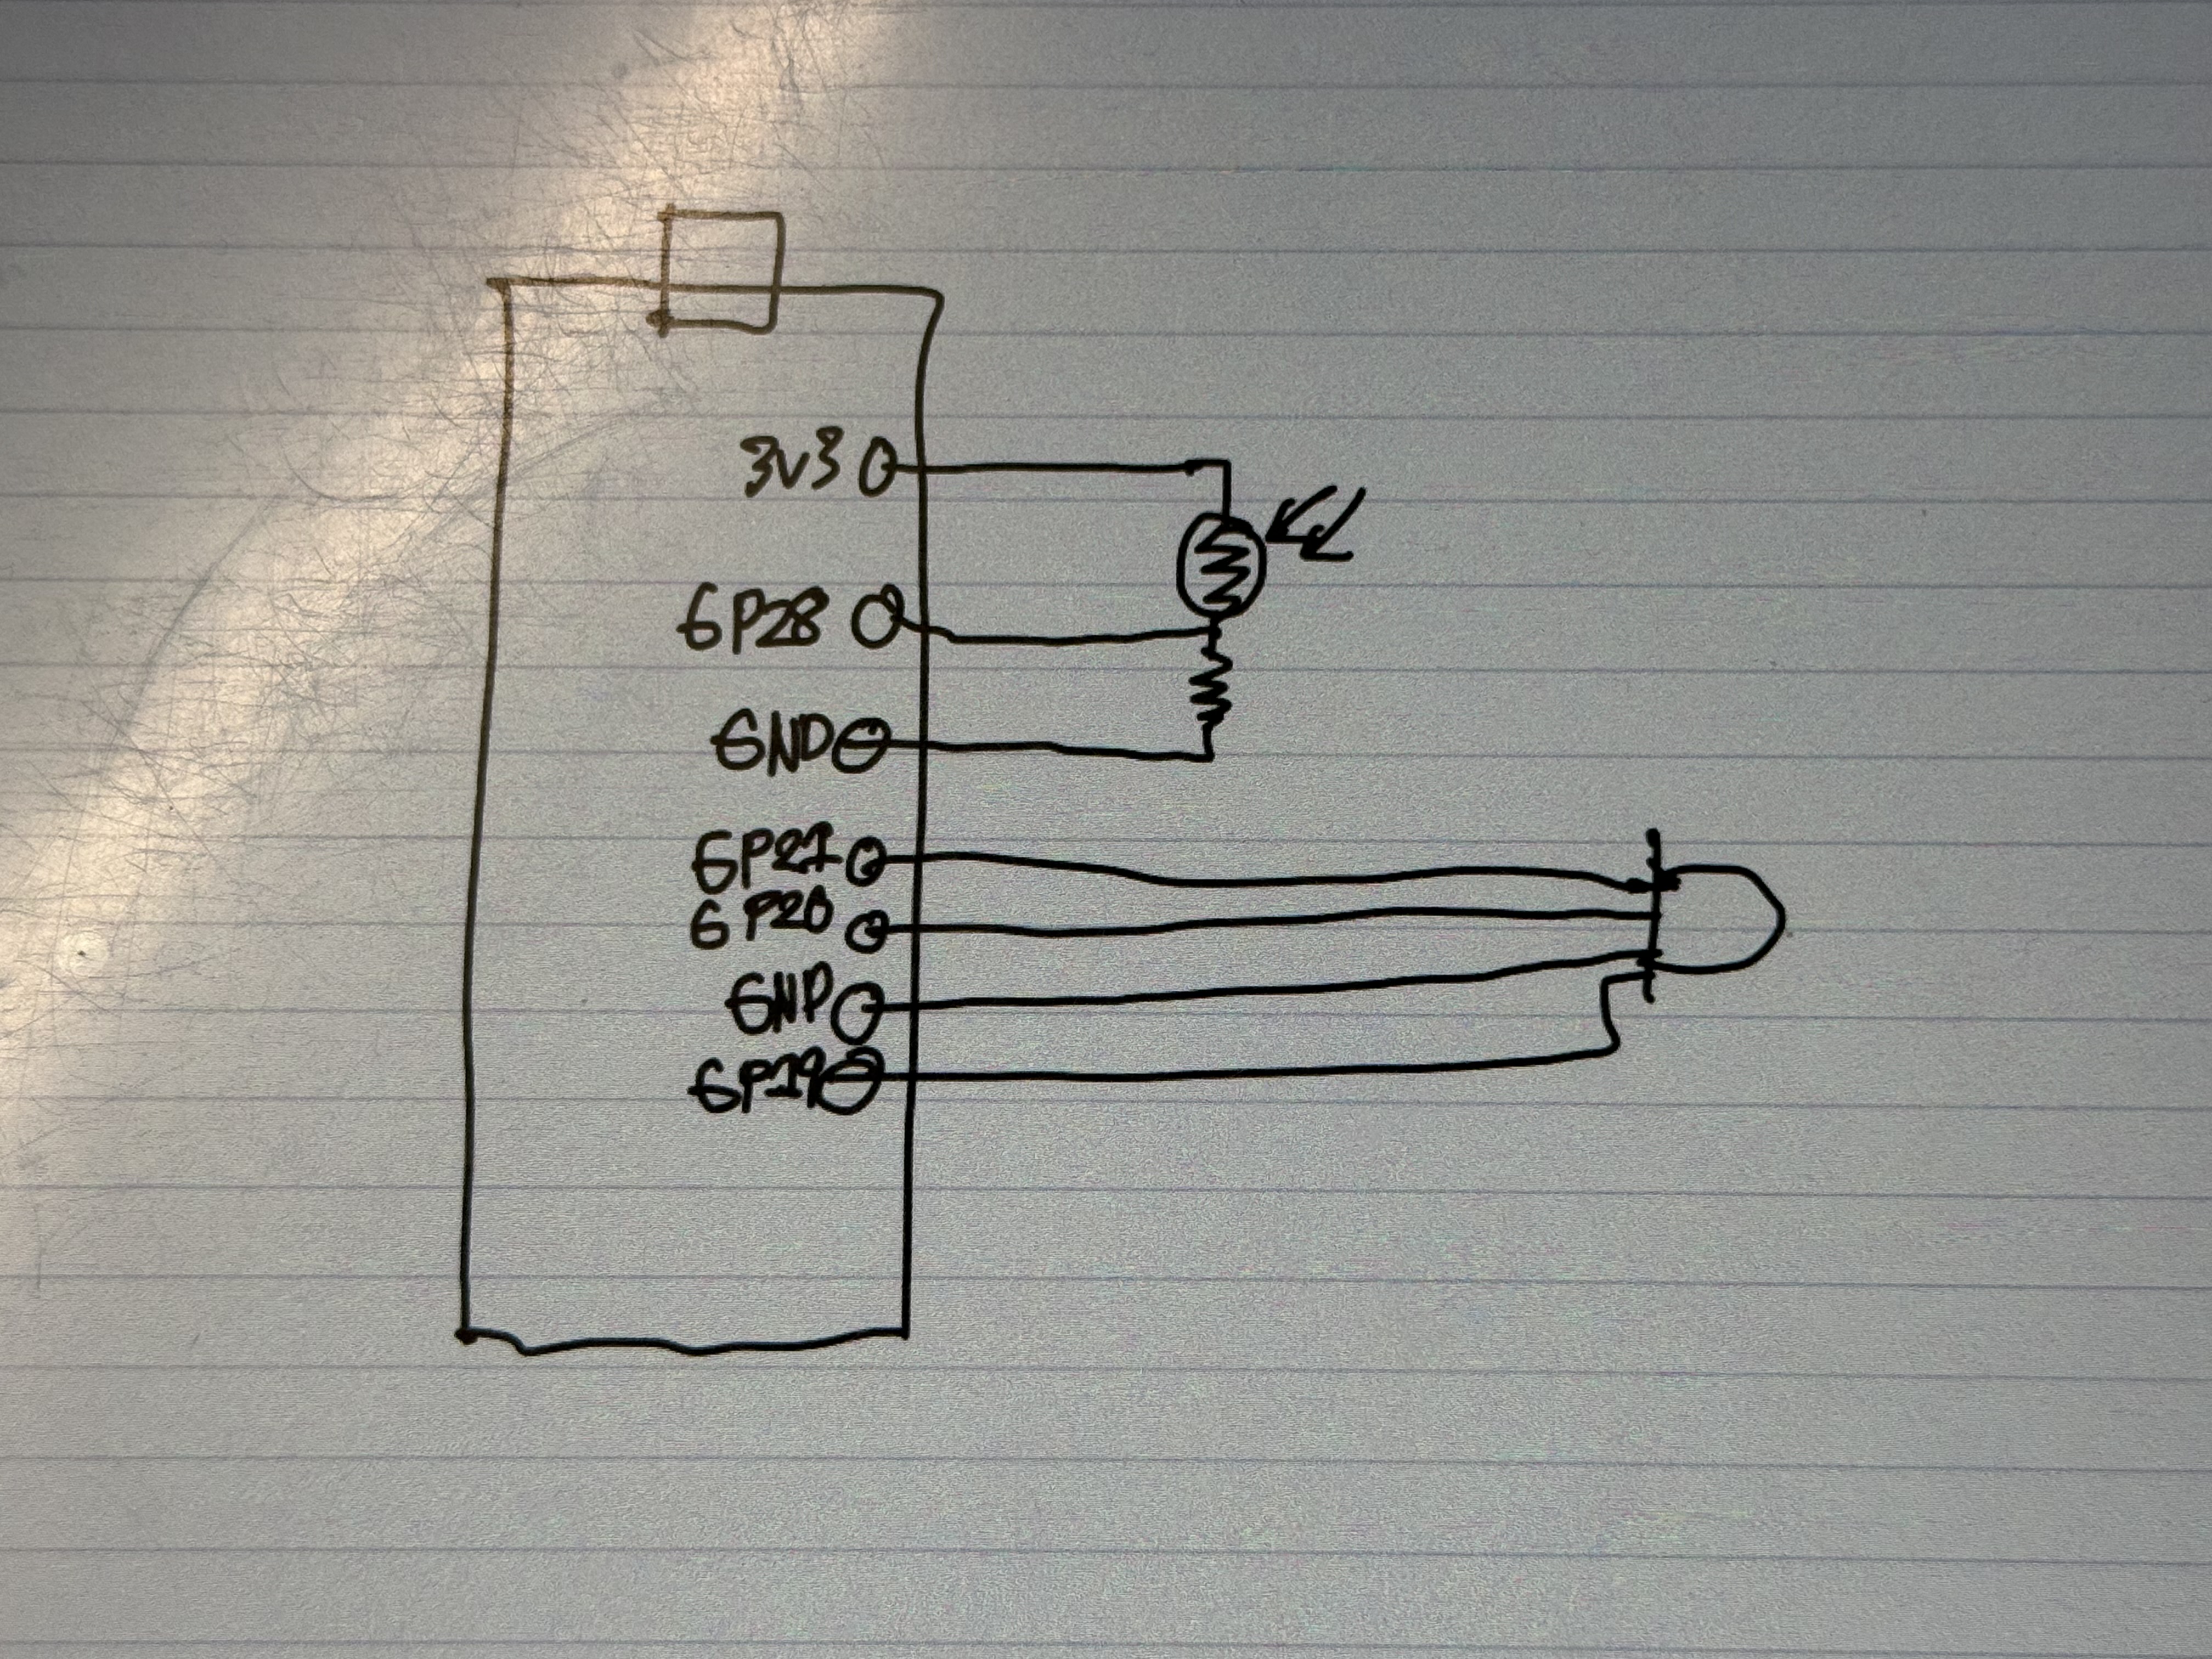 3V3
GP28
GND
GP21
GP20
GND
GP19